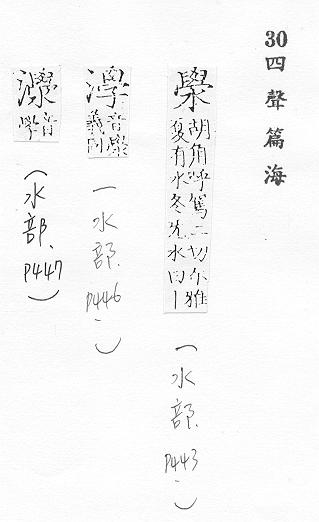 30四聲篇海
澩
胡角呼篤二切尔雅
夏有水冬无水曰丨
(水部、P443、)
音澩
義同
(水部、P446、)
音
學
(水部、P447)